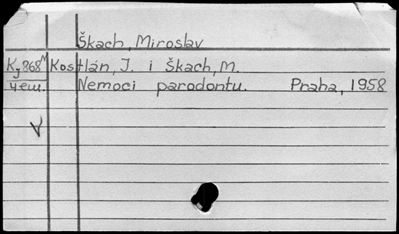 Škach, Miroslav
Kj868M Kostlán, J. i Škach, M.
чеш. Nemoci parodontu. Praha, 1958